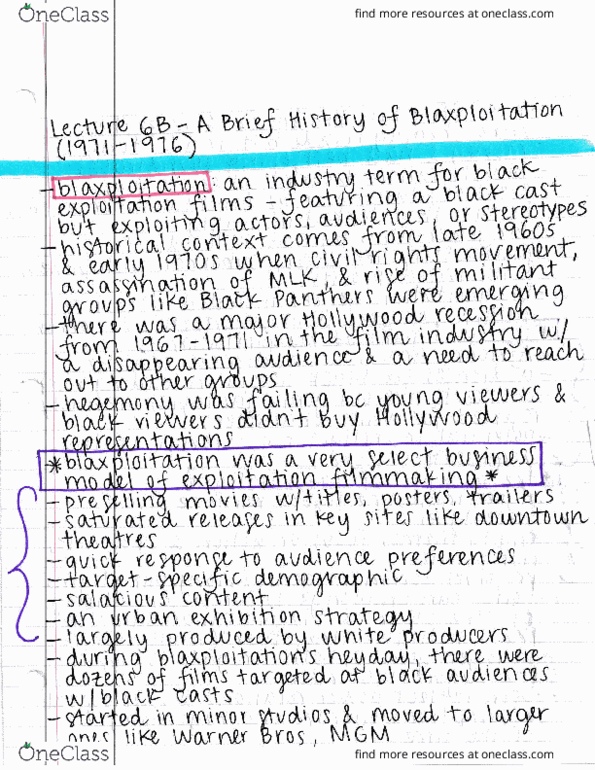 OneClass
find more resources at oneclass.com
Lecture 6B - A Brief History of Blaxploitation
(1971-1976)
- blaxploitation: an industry term for black
exploitation films - featuring a black cast
but exploiting actors, audiences, or stereotypes
- historical context comes from late 1960s
& early 1970s when civil rights movement,
assassination of MLK, & rise of militant
groups like Black Panthers were emerging
- there was a major Hollywood recession
from 1967-1971 in the film industry w/
a disappearing audience & a need to reach
out to other groups
- hegemony was failing bc young viewers &
black viewers didn't buy Hollywood
representations
* blaxploitation was a very select business
model of exploitation filmmaking *
- preselling movies w/titles, posters, trailers
- saturated releases in key sites like downtown
theatres
- quick response to audience preferences
- target-specific demographic
- salacious content
- an urban exhibition strategy
- largely produced by white producers
- during blaxploitation's heyday, there were
dozens of films targeted at black audiences
w/black casts
- started in minor studios & moved to larger
ones like Warner Bros, MGM
OneClass
find more resources at oneclass.com